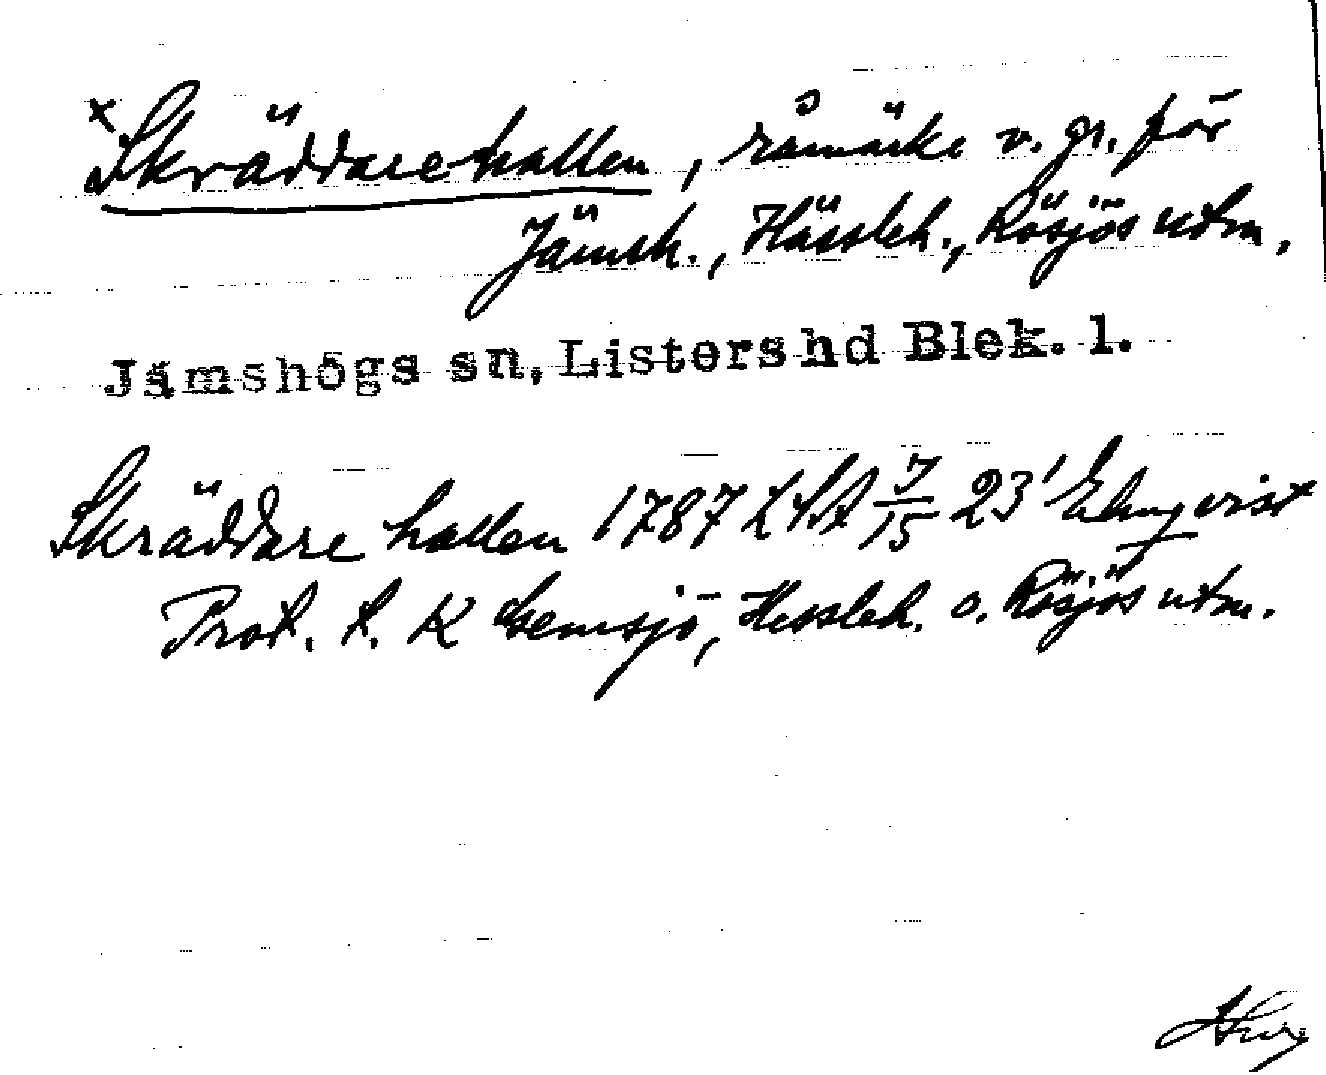 x Skräddarehallen, råmärke v. gr. för
Jämsh., Hässleh., Rösjös utm.
Jämshögs sn, Listers hd Blek. l.
Skräddare hallen 1787 LSA J/15 23' Elmqvist
Prot. t. K Gemsjö, Hessleh. o. Rösjös utm.